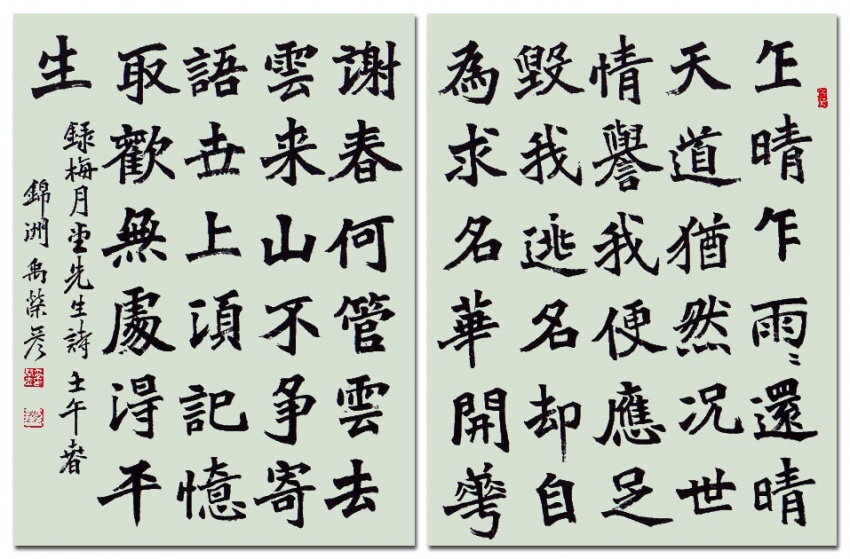 乍晴乍雨〻還晴
天道猶然況世
情譽我便應是
毀我逃名却自
為求名華開華
謝春何管雲去
雲来山不爭寄
語世上須記憶
取歡無處得平
生
錄梅月堂先生詩 壬午春
錦洲 禹榮彦